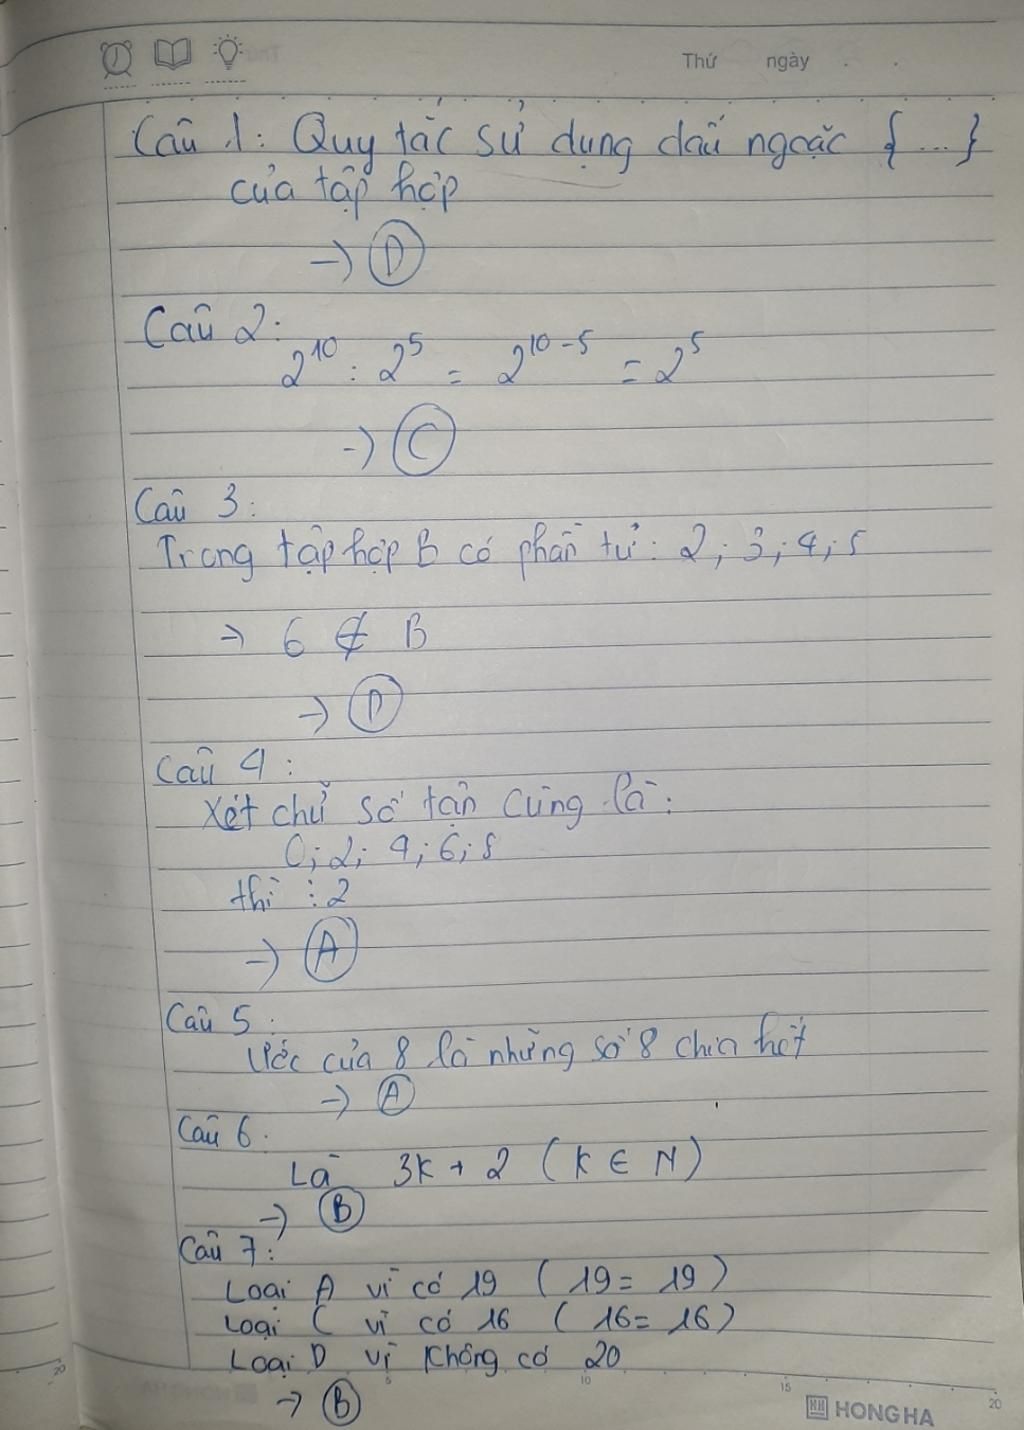 Thứ ngày
Câu 1: Quy tắc sử dụng dấu ngoặc {...}
của tập hợp
→ D
Câu 2:
2^10 : 2^5 = 2^10-5 = 2^5
→ C
Câu 3:
Trong tập hợp B có phần tử: 2; 3; 4; 5
→ 6 ∉ B
→ D
Câu 4:
Xét chữ số tận cùng là:
0; 2; 4; 6; 8
thì ⋮ 2
→ A
Câu 5:
Ước của 8 là những số 8 chia hết
→ A
Câu 6.
Là 3k + 2 (K ∈ N)
→ B
Câu 7:
Loại A vì có 19 (19 = 19)
Loại C vì có 16 (16 = 16)
Loại D vì không có 20
→ B
5 10 15 20
HONG HA
20